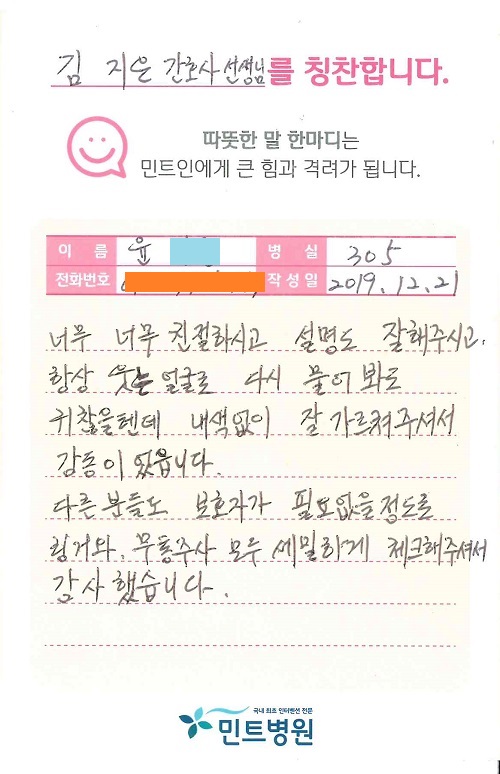 김 지은 간호사 선생님를 칭찬합니다.
따뜻한 말 한마디는
민트인에게 큰 힘과 격려가 됩니다.
이 름 윤 병 실 305
전화번호 작성일 2019.12.21
너무 너무 친절하시고 설명도 잘해주시고.
항상 웃는 얼굴로 다시 물어 봐도
귀찮을텐데 내색없이 잘 가르쳐주셔서
감동이 있읍니다.
다른분들도 보호자가 필요없을정도로
링거와, 무통주사 모두 세밀하게 체크해주셔서
감사했습니다.
국내 최초 인터벤션 전문
민트병원